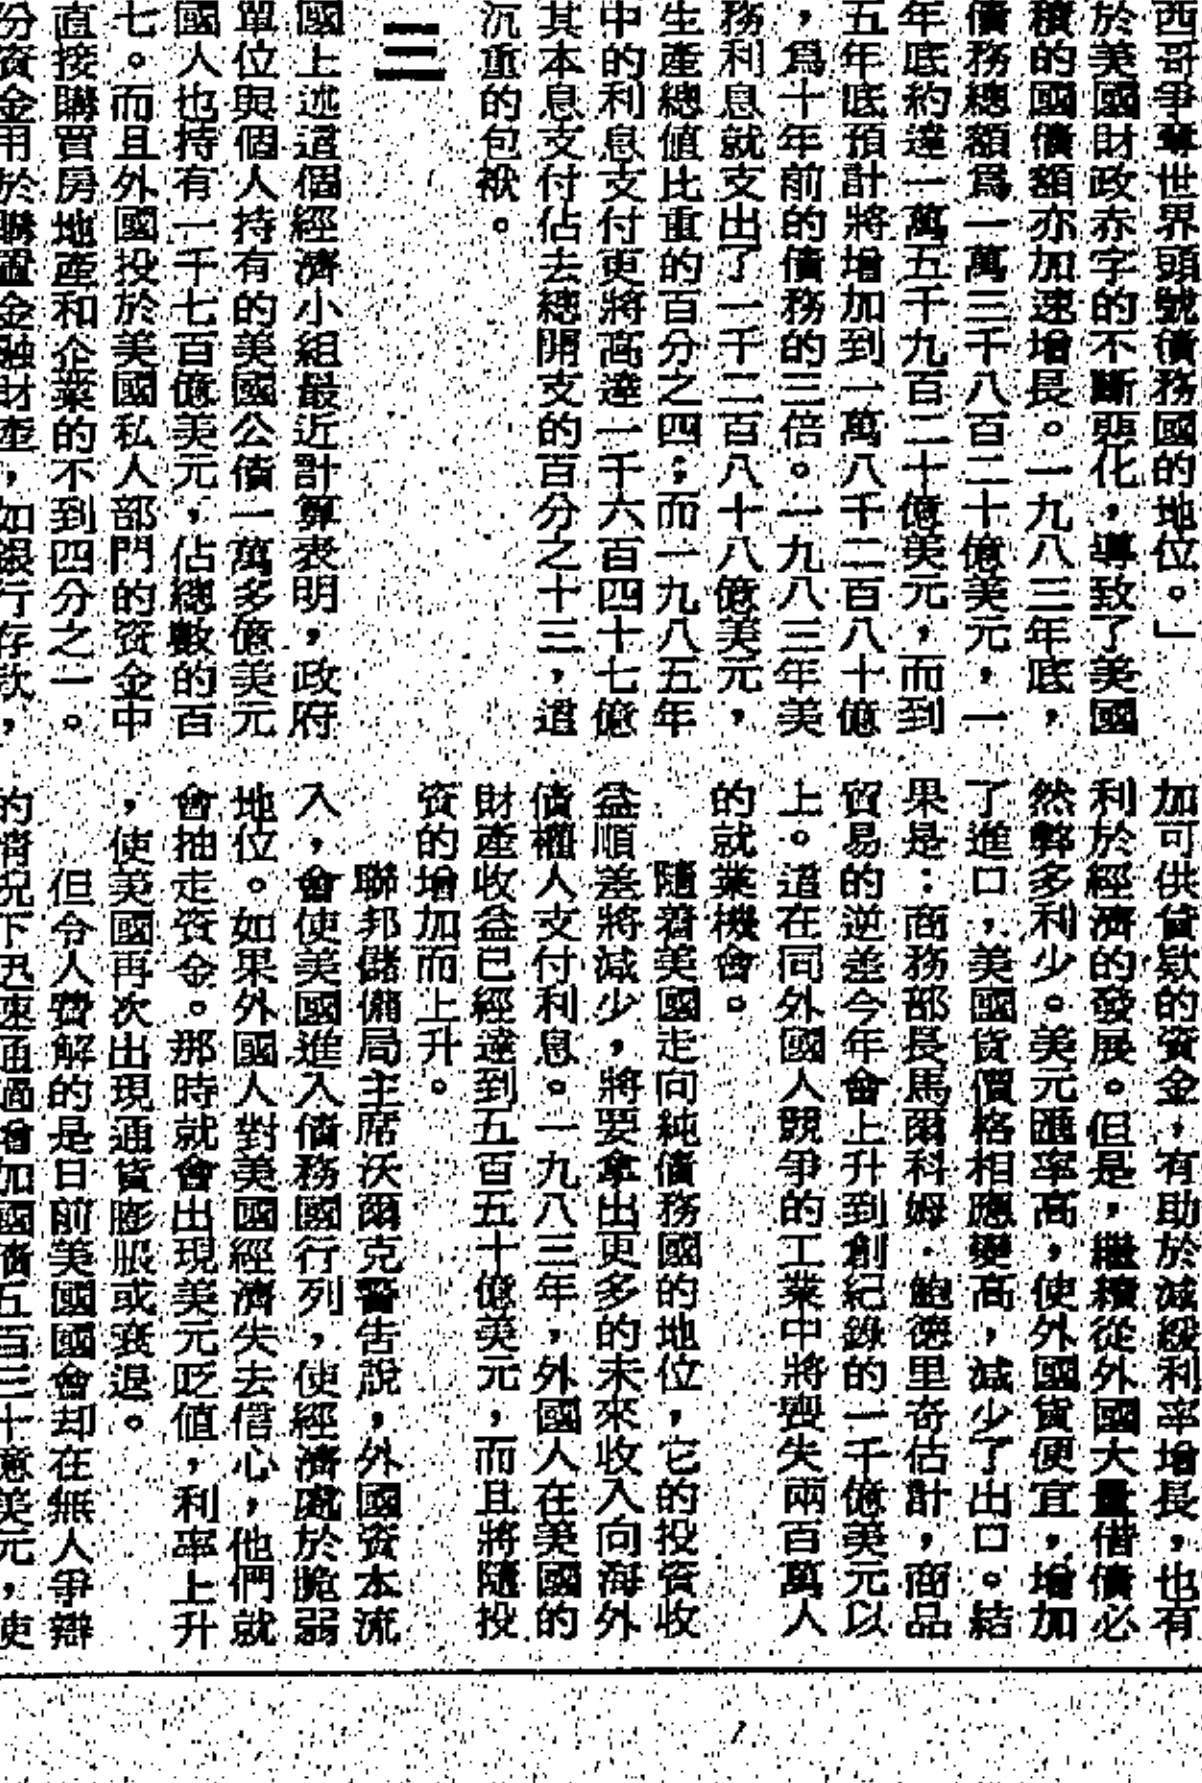 西哥爭奪世界頭號債務國的地位。」
於美國財政赤字的不斷惡化，導致了美國
積的國債額亦加速增長。一九八三年底，
債務總額爲一萬三千八百二十億美元，一
年底約達一萬五千九百二十億美元，而到
五年底預計將增加到一萬八千二百八十億
，爲十年前的債務的三倍。一九八三年美
務利息就支出了一千二百八十八億美元，
生產總值比重的百分之四；而一九八五年
中的利息支付更將高達一千六百四十七億
其本息支付佔去總開支的百分之十三，這
沉重的包袱。
三
國上述這個經濟小組最近計算表明，政府
單位與個人持有的美國公債一萬多億美元
國人也持有一千七百億美元，佔總數的百
七。而且外國投於美國私人部門的資金中
直接購買房地產和企業的不到四分之一。
份資金用於購置金融財產，如銀行存款，
加可供貸款的資金，有助於減緩利率增長，也有
利於經濟的發展。但是，繼續從外國大量借債必
然弊多利少。美元匯率高，使外國貨便宜，增加
了進口，美國貨價格相應變高，減少了出口。結
果是：商務部長馬爾科姆·鮑德里奇估計，商品
貿易的逆差今年會上升到創紀錄的一千億美元以
上。這在同外國人競爭的工業中將喪失兩百萬人
的就業機會。
隨着美國走向純債務國的地位，它的投資收
益順差將減少，將要拿出更多的未來收入向海外
債權人支付利息。一九八三年，外國人在美國的
財產收益已經達到五百五十億美元，而且將隨投
資的增加而上升。
聯邦儲備局主席沃爾克警告說，外國資本流
入，會使美國進入債務國行列，使經濟處於脆弱
地位。如果外國人對美國經濟失去信心，他們就
會抽走資金。那時就會出現美元貶值，利率上升
，使美國再次出現通貨膨脹或衰退。
但令人費解的是日前美國國會却在無人爭辯
的情況下迅速通過增加國債五百三十億美元，使